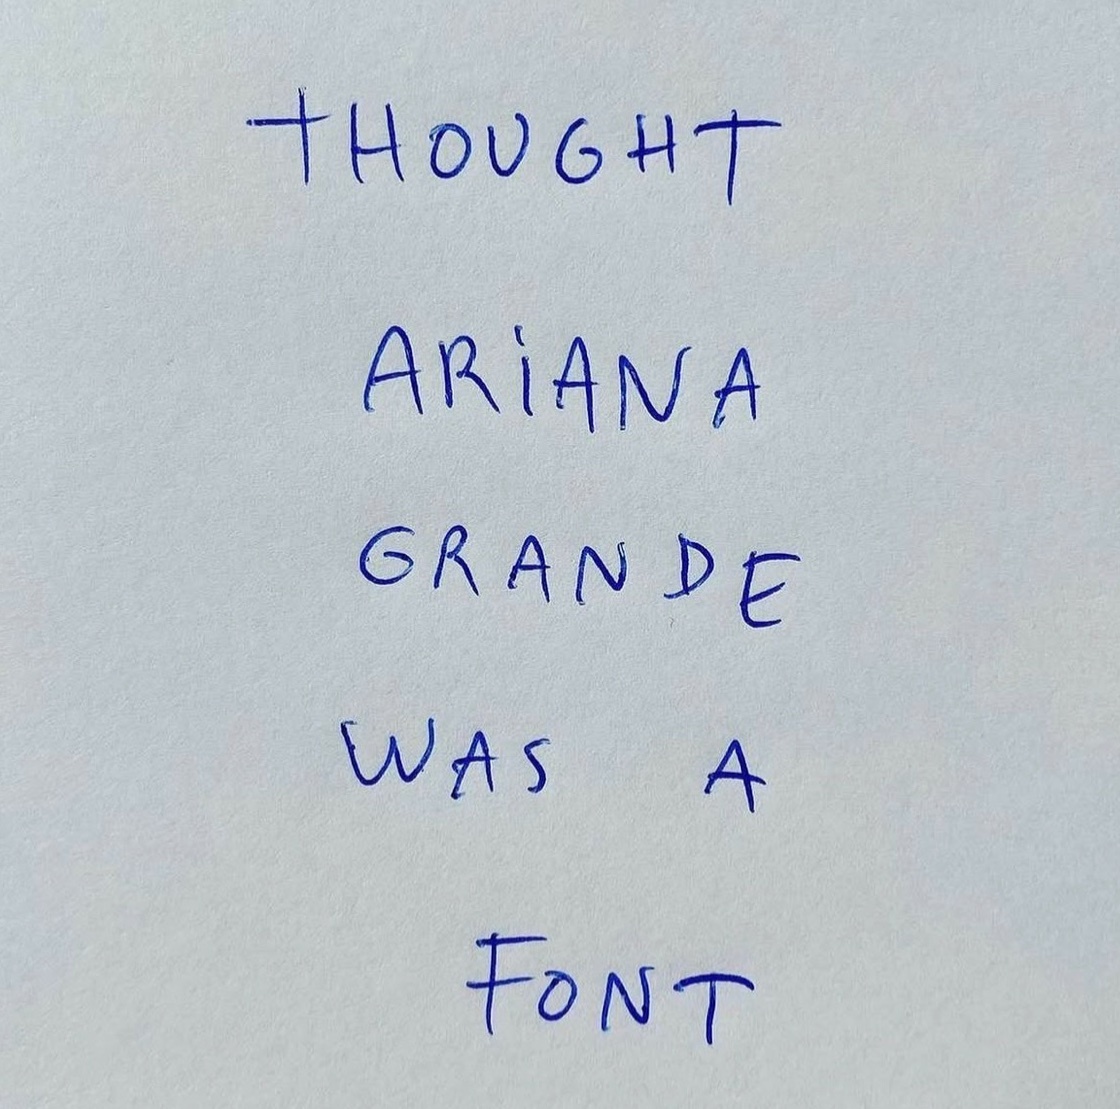 THOUGHT
ARiANA
GRANDE
WAS A
FONT